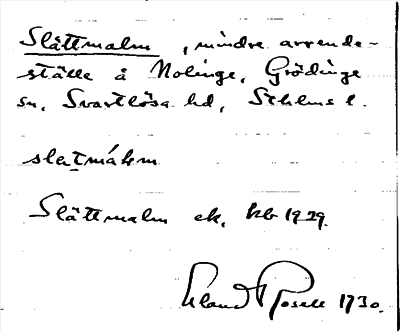 Slättmalm, mindre arrende-
ställe å Nolinge, Grödinge
sn, Svartlösa hd, Sthlms l.
slætmálm
Slättmalm ek. kb 1929.
Erland Rosell 1930.